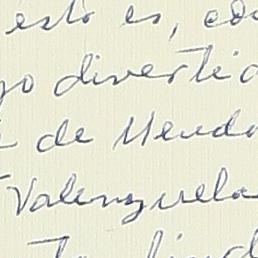 esto es, co
go diverti
de Mendo
Valenzuela